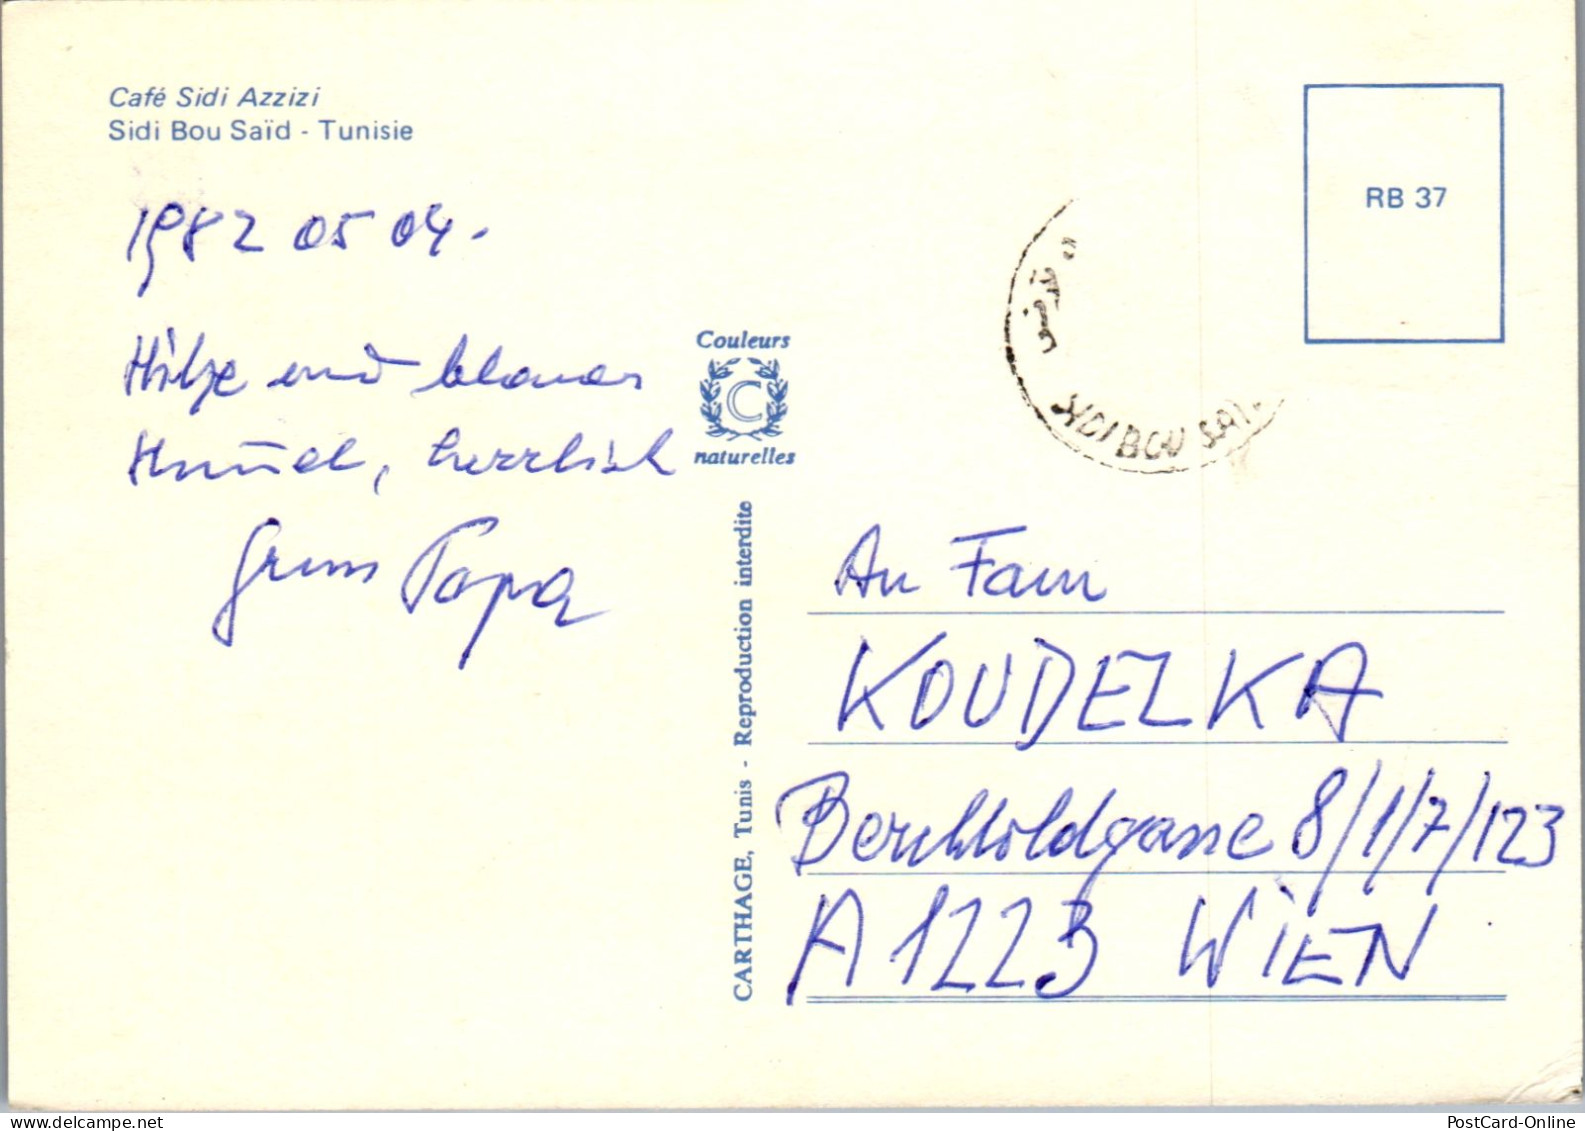 Café Sidi Azzizi
Sidi Bou Saïd - Tunisie
1982 05 04.
Hitze und blauer
Himmel, herrlich
Gruss Papa
Couleurs
C
naturelles
CARTHAGE, Tunis - Reproduction interdite
RB 37
SIDI BOU SAI
An Fam
KOUDELKA
Berchtoldgasse 8/1/7/123
A 1223 WIEN
PostCard-Online